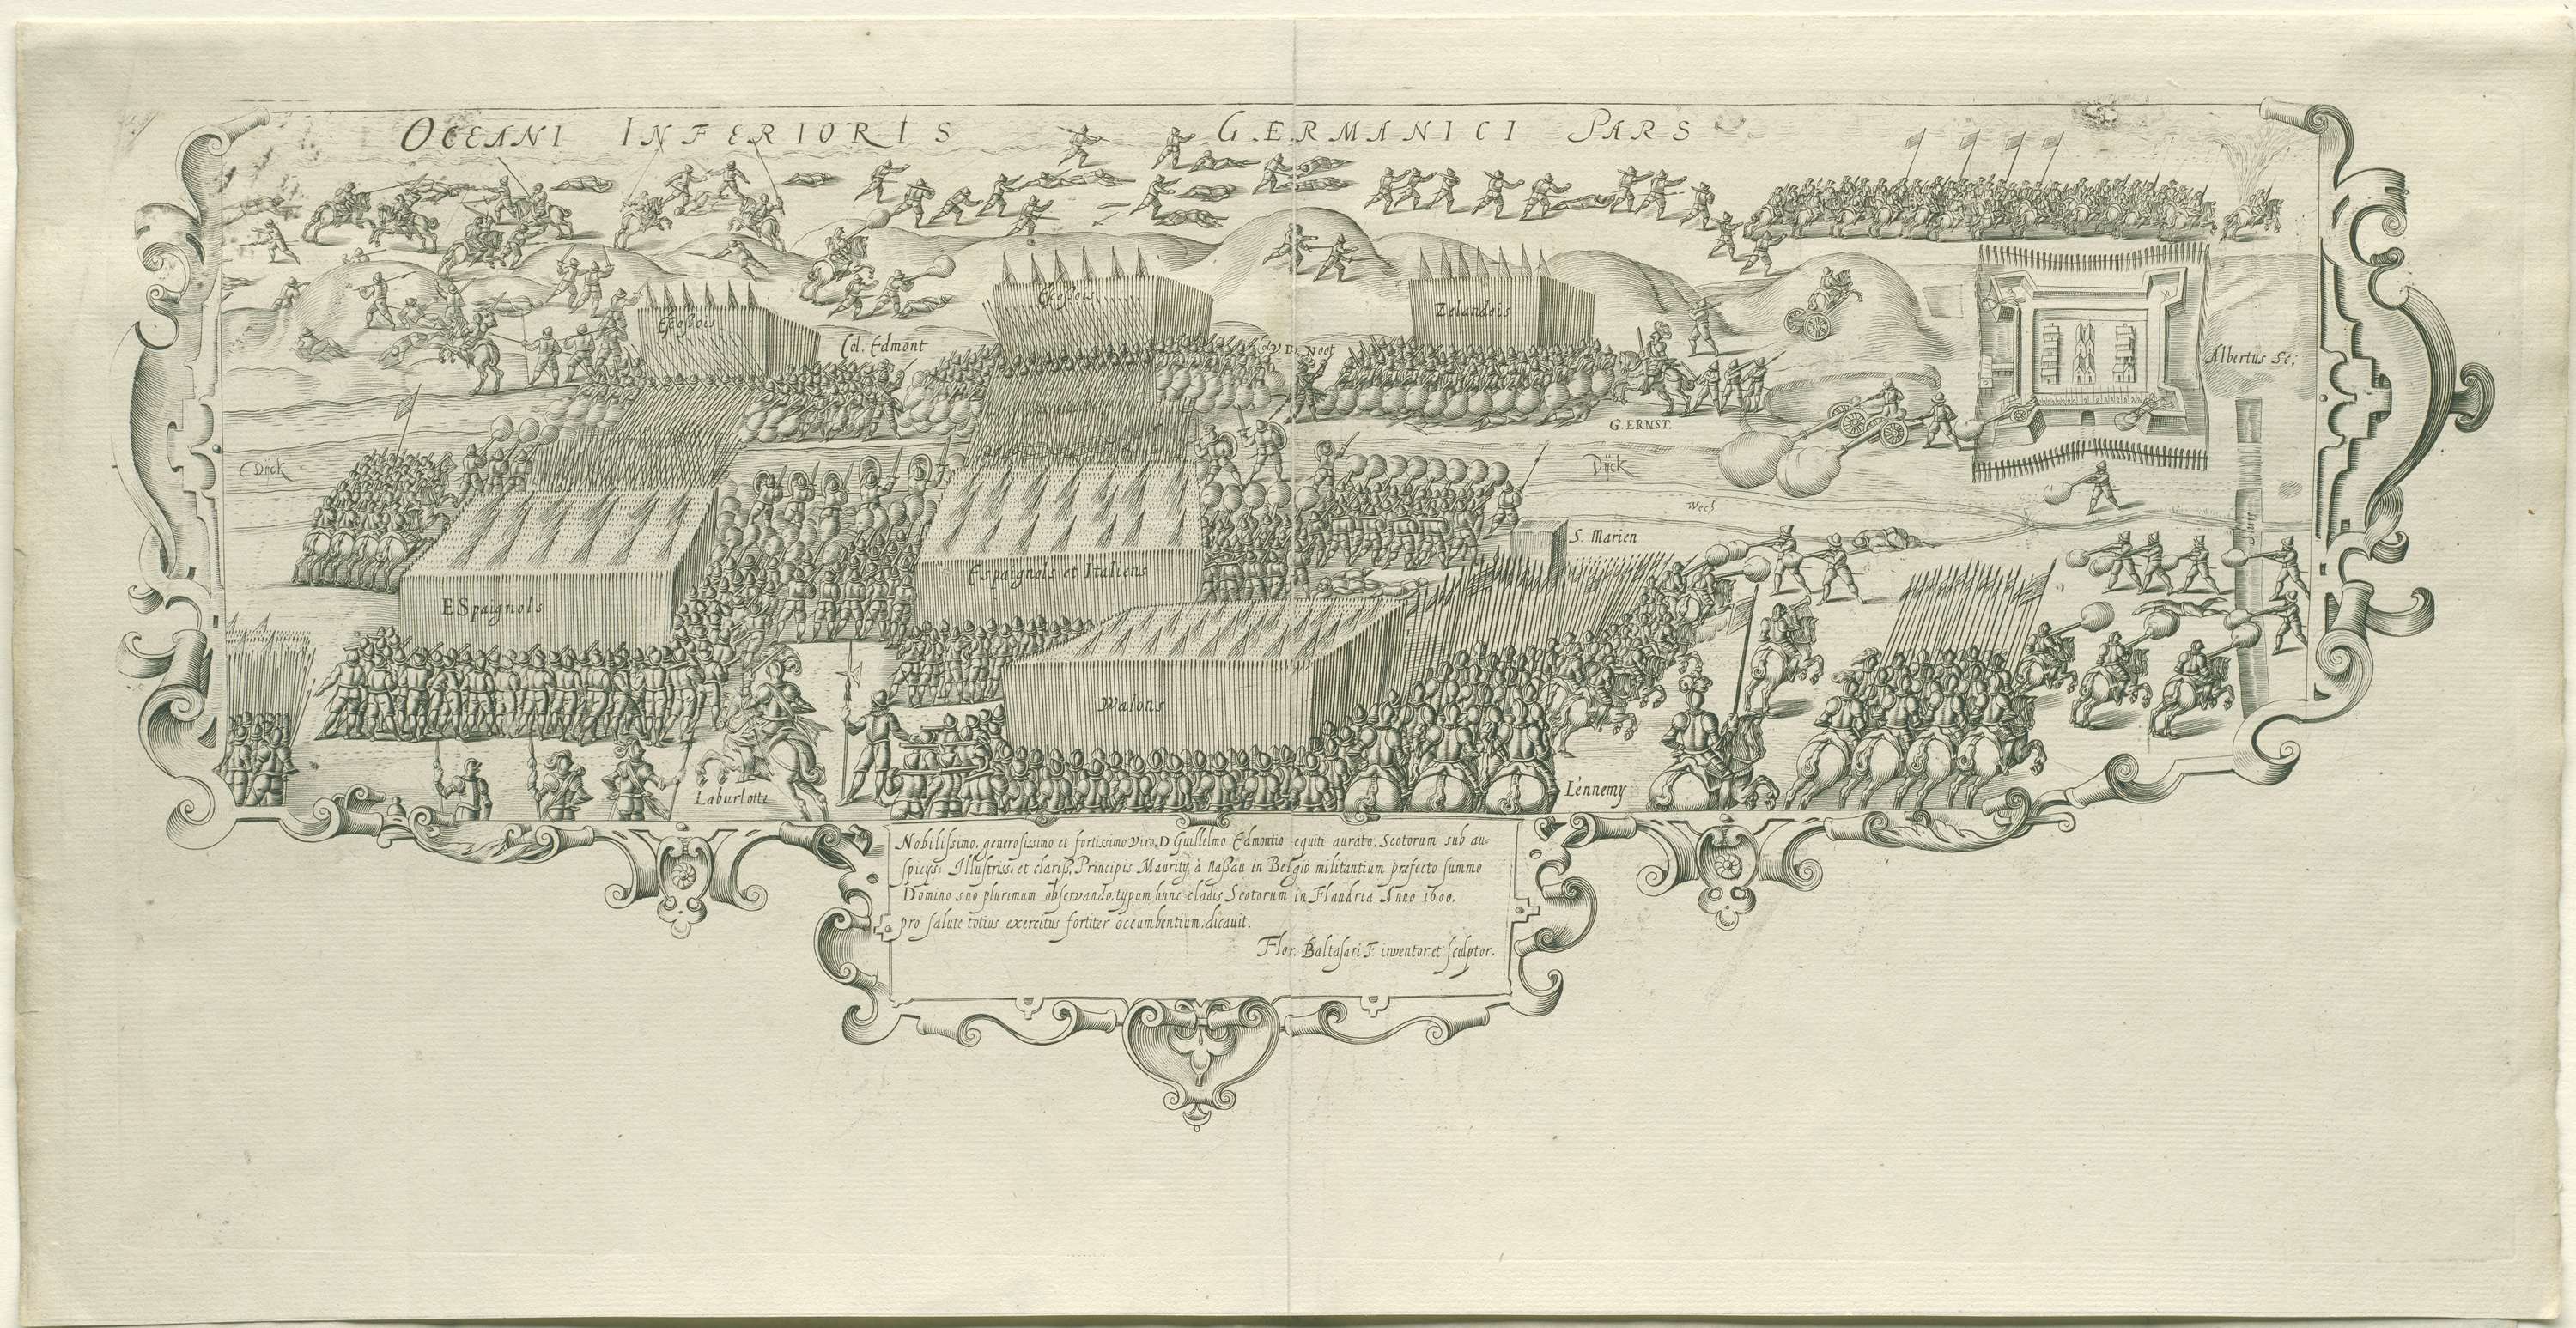 OCEANI INFERIORIS GERMANICI PARS
Escossois
Escossois
Zelandois
Col. Edmont
V. D. Noot
Albertus Sc:
G. ERNST.
Dijck
Dijck
Wech
S. Marien
Espaignols et Italiens
ESpaignols
Walons
Laburlotte
Lennemy
Nobilissimo, generosissimo et fortissimo Viro, D Guillelmo Edmontio equiti aurato, Scotorum sub au-
spicys Illustriss: et clariss, Principis Maurity à Nassau in Belgio militantium præfecto summo
Domino suo plurimum observando, typum hunc cladis Scotorum in Flandria Anno 1600.
pro salute totius exercitus fortiter occumbentium, dicauit.
Flor. Baltasari F. inventor et sculptor.